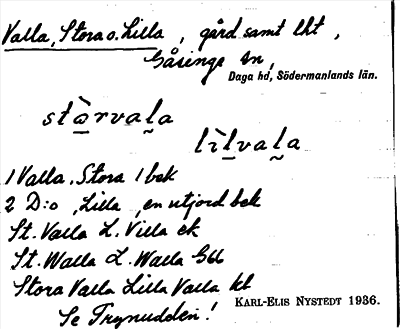 Valla, Stora o. Lilla, gård samt lht,
Gåsinge sn,
Daga hd, Södermanlands län.
stò̱rvaḷa
lìḻvaḷa
1 Valla, Stora 1 bek
2 D:o, Lilla, en utjord bek
St. Valla L. Villa ek
St. Walla L. Walla Gbl
Stora Valla Lilla Valla kl
Se Trynudden!
KARL-ELIS NYSTEDT 1936.